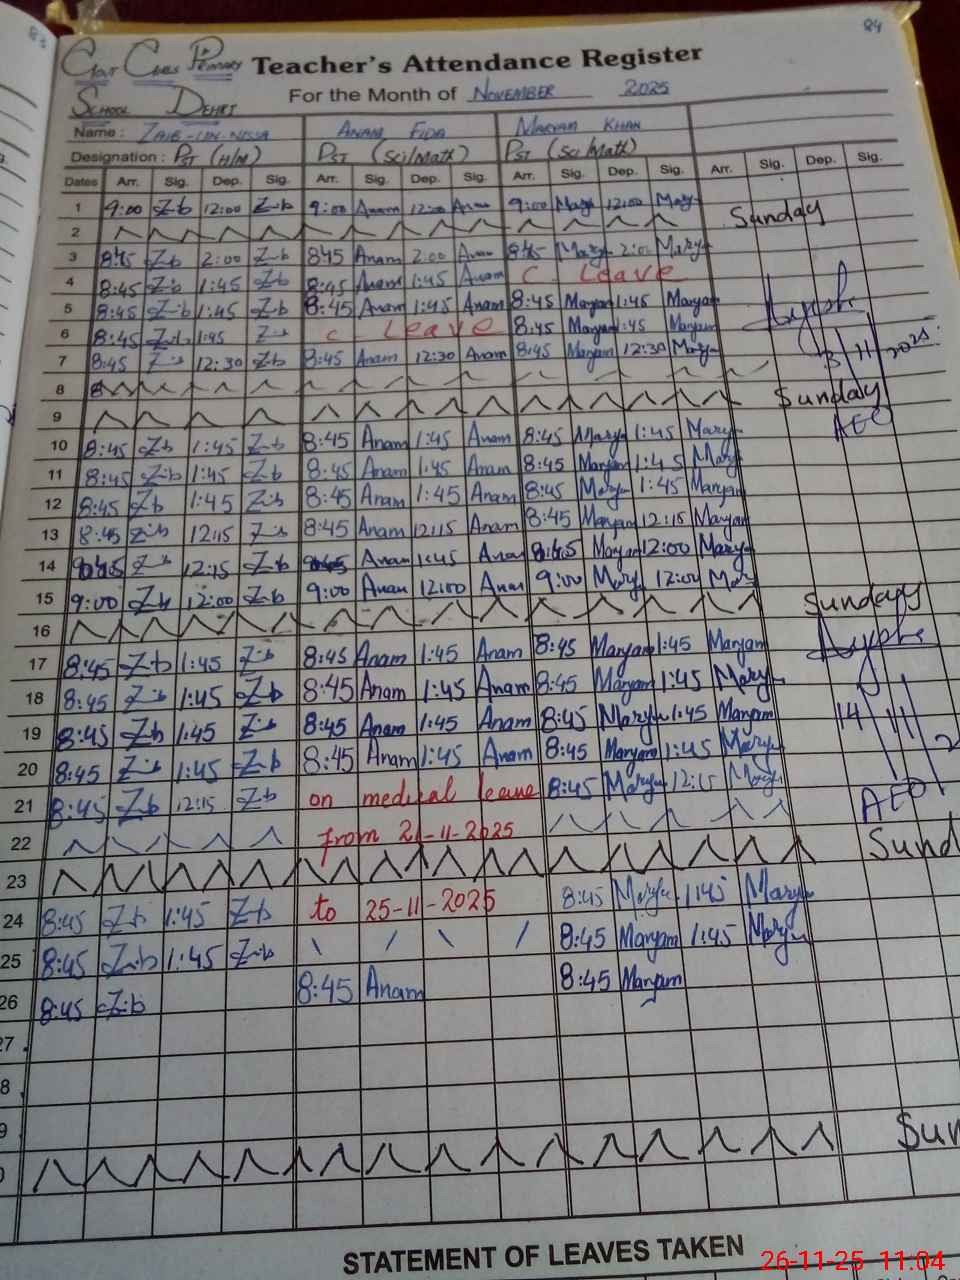 83
84
Govt Girls Primary
School Dehri
Teacher's Attendance Register
For the Month of November 2025
Name : Zaib-un-Nissa Anam Fida Maryam Khan
Designation : PST (H/M) PST (Sci/Math) PST (Sci/Math)
Dates Arr. Sig. Dep. Sig. Arr. Sig. Dep. Sig. Arr. Sig. Dep. Sig. Arr. Sig. Dep. Sig.
1 9:00 Z-b 12:00 Z-b 9:00 Anam 12:00 Anam 9:00 Mary 12:00 Mary
2 Sunday
3 8:45 Z-b 2:00 Z-b 845 Anam 2:00 Anam 8:45 Mary 2:00 Mary
4 8:45 Z-b 1:45 Z-b 8:45 Anam 1:45 Anam C Leave
5 8:45 Z-b 1:45 Z-b 8:45 Anam 1:45 Anam 8:45 Maryam 1:45 Maryam
6 8:45 Z-b 1:45 Z-b C Leave 8:45 Maryam 1:45 Maryam
7 8:45 Z-b 12:30 Z-b 8:45 Anam 12:30 Anam 8:45 Maryam 12:30 Marya
3/11/2025
8 8
9 Sunday
AEO
10 8:45 Z-b 1:45 Z-b 8:45 Anam 1:45 Anam 8:45 Mary 1:45 Mary
11 8:45 Z-b 1:45 Z-b 8:45 Anam 1:45 Anam 8:45 Maryam 1:45 Mary
12 8:45 Z-b 1:45 Z-b 8:45 Anam 1:45 Anam 8:45 Mary 1:45 Maryam
13 8:45 Z-b 12:15 Z-b 8:45 Anam 12:15 Anam 8:45 Maryam 12:15 Maryam
14 Z-b 12:15 Z-b Anam 1:45 Anam 8:45 Maryam 12:00 Mary
15 9:00 Z-b 12:00 Z-b 9:00 Anam 12:00 Anam 9:00 Mary 12:00 Mary
16 Sunday
17 8:45 Z-b 1:45 Z-b 8:45 Anam 1:45 Anam 8:45 Maryam 1:45 Maryam
18 8:45 Z-b 1:45 Z-b 8:45 Anam 1:45 Anam 8:45 Maryam 1:45 Mary
19 8:45 Z-b 1:45 Z-b 8:45 Anam 1:45 Anam 8:45 Mary 1:45 Maryam
14/11/2
20 8:45 Z-b 1:45 Z-b 8:45 Anam 1:45 Anam 8:45 Maryam 1:45 Mary
21 8:45 Z-b 12:15 Z-b on medical leave 8:45 Mary 12:15 Mary
AEO
22 from 21-11-2025
23 Sund
24 8:45 Z-b 1:45 Z-b to 25-11-2025 8:45 Mary 1:45 Mary
25 8:45 Z-b 1:45 Z-b 8:45 Maryam 1:45 Mary
26 8:45 Z-b 8:45 Anam 8:45 Maryam
27
8
9
0 Sun
STATEMENT OF LEAVES TAKEN
26-11-25 11:04